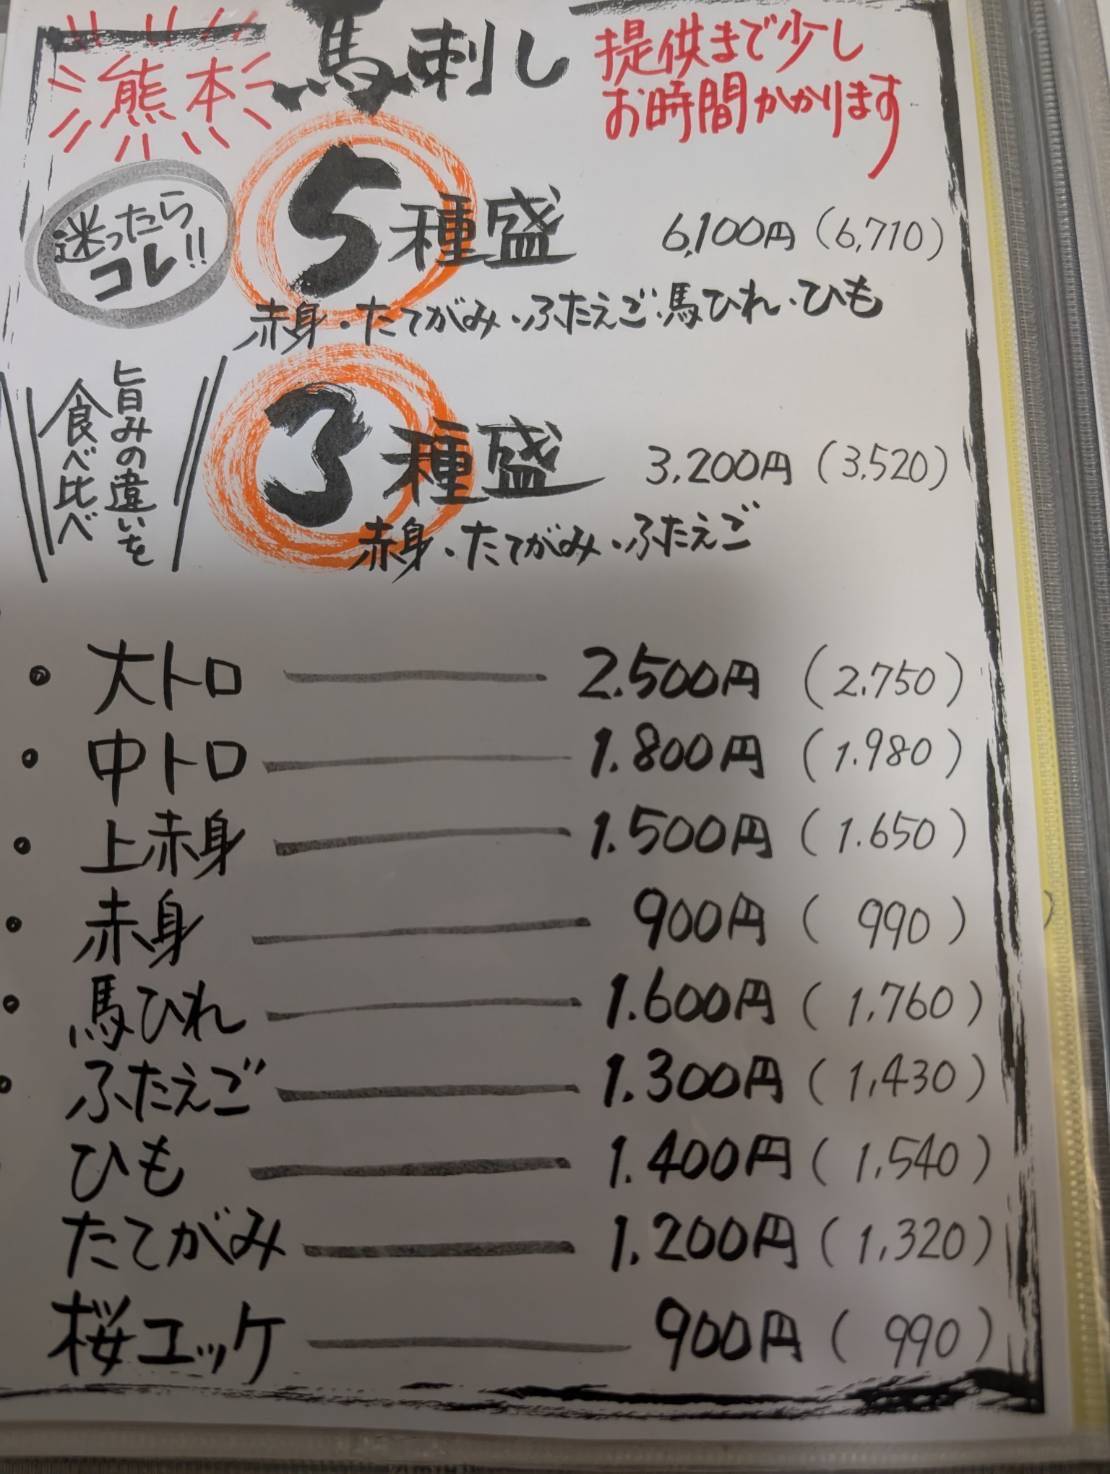 熊本 馬刺し
提供まで少し
お時間かかります
迷ったら
コレ!!
5種盛 6,100円(6,710)
赤身・たてがみ・ふたえご・馬ひれ・ひも
旨みの違いを
食べ比べ
3種盛 3,200円(3,520)
赤身・たてがみ・ふたえご
・大トロ 2.500円(2.750)
・中トロ 1.800円(1.980)
・上赤身 1.500円(1.650)
・赤身 900円(990)
・馬ひれ 1.600円(1,760)
・ふたえご 1.300円(1,430)
ひも 1.400円(1,540)
たてがみ 1.200円(1,320)
桜ユッケ 900円(990)